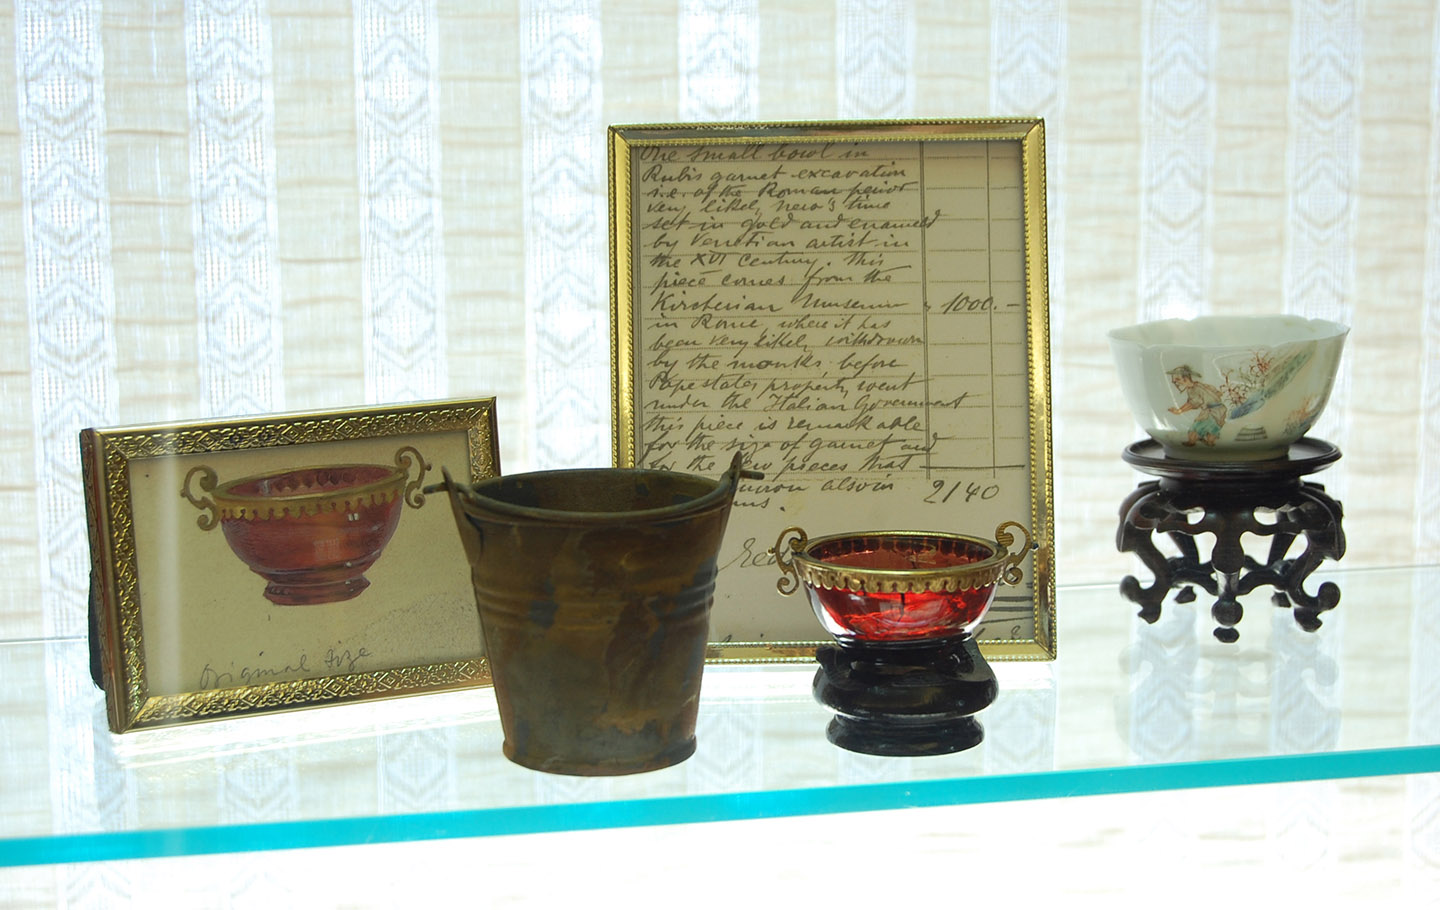 One small bowl in
Rubis garnet excavation
i.e. of the Roman period
very likely nero's time
set in gold and enameled
by Venetian artist in
the XVI Century. This
piece comes from the
Kircherian Museum " 1000.-
in Rome, where it has
been very likely withdrawn
by the monks, before
Pape states property went
under the Italian Government
this piece is remarkable
for the size of garnet and
for the few pieces that
also in 2140
Original Size